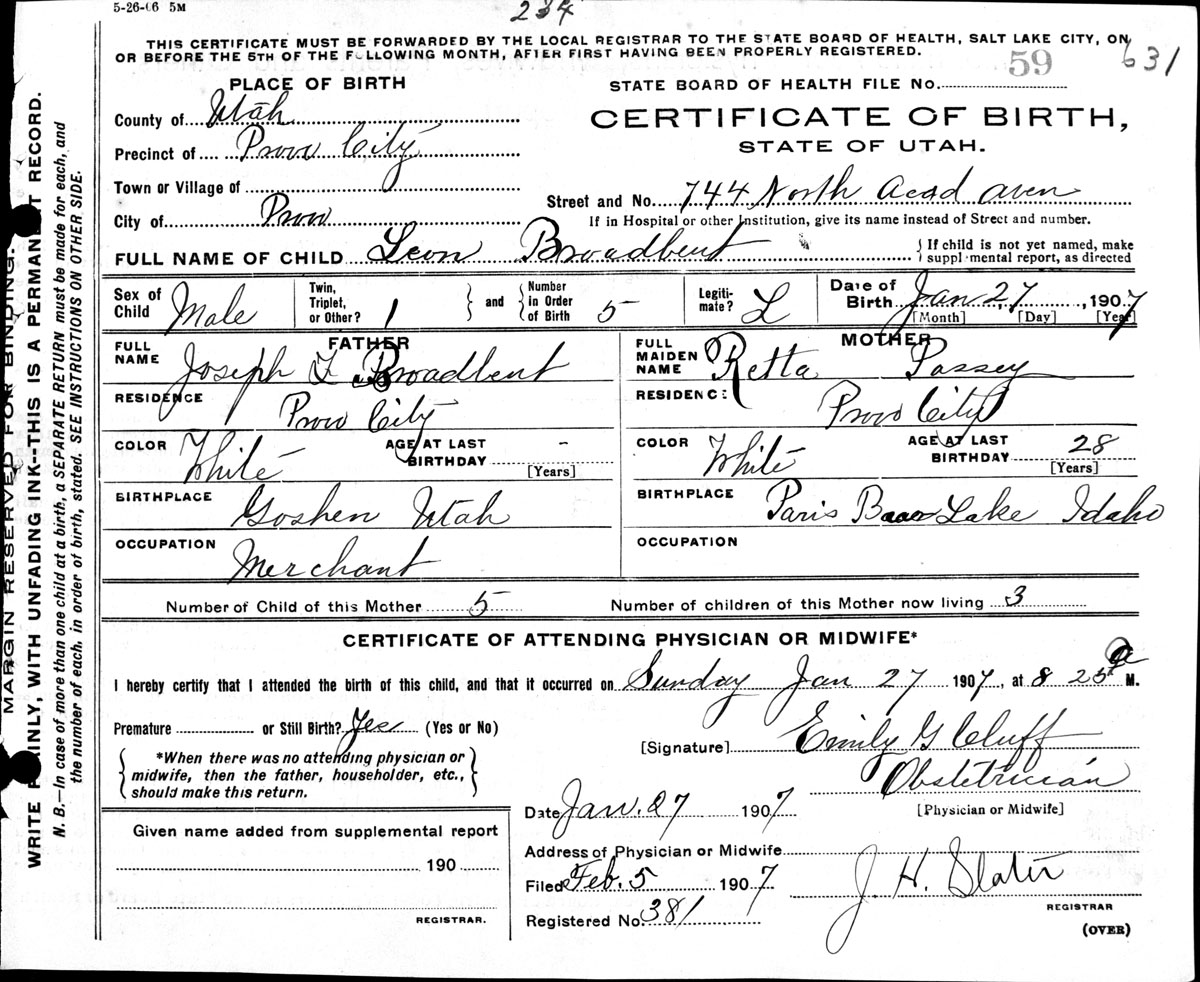 5-26-06 5M
234
THIS CERTIFICATE MUST BE FORWARDED BY THE LOCAL REGISTRAR TO THE STATE BOARD OF HEALTH, SALT LAKE CITY, ON
OR BEFORE THE 5TH OF THE FOLLOWING MONTH, AFTER FIRST HAVING BEEN PROPERLY REGISTERED.
59 631
PLACE OF BIRTH
STATE BOARD OF HEALTH FILE No.
County of Utah
CERTIFICATE OF BIRTH,
STATE OF UTAH.
Precinct of Provo City
Town or Village of
Street and No. 744 North Acad aven
City of Provo
If in Hospital or other Institution, give its name instead of Street and number.
FULL NAME OF CHILD Leon Broadbent
{ If child is not yet named, make
supplemental report, as directed
Sex of Child Male
Twin, Triplet, or Other? 1 } and { Number in Order of Birth 5
Legitimate? L
Date of Birth Jan 27, 1907
[Month] [Day] [Year]
FATHER
FULL NAME Joseph F Broadbent
RESIDENCE Provo City
COLOR White
AGE AT LAST BIRTHDAY -
[Years]
BIRTHPLACE Goshen Utah
OCCUPATION Merchant
MOTHER
FULL MAIDEN NAME Retta Passey
RESIDENCE Provo City
COLOR White
AGE AT LAST BIRTHDAY 28
[Years]
BIRTHPLACE Paris Bear Lake Idaho
OCCUPATION
Number of Child of this Mother 5 Number of children of this Mother now living 3
CERTIFICATE OF ATTENDING PHYSICIAN OR MIDWIFE*
I hereby certify that I attended the birth of this child, and that it occurred on Sunday Jan 27 1907, at 8 25 a M.
Premature or Still Birth? Yes (Yes or No)
{ *When there was no attending physician or
midwife, then the father, householder, etc.,
should make this return. }
[Signature] Emily G Cluff
Obstetrician
[Physician or Midwife]
Date Jan. 27 1907
Given name added from supplemental report
190
REGISTRAR.
Address of Physician or Midwife
Filed Feb. 5 1907
J. H. Slater
REGISTRAR
Registered No. 381
(OVER)
MARGIN RESERVED FOR BINDING.
WRITE PLAINLY, WITH UNFADING INK--THIS IS A PERMANENT RECORD.
N. B.—In case of more than one child at a birth, a SEPARATE RETURN must be made for each, and
the number of each, in order of birth, stated. SEE INSTRUCTIONS ON OTHER SIDE.